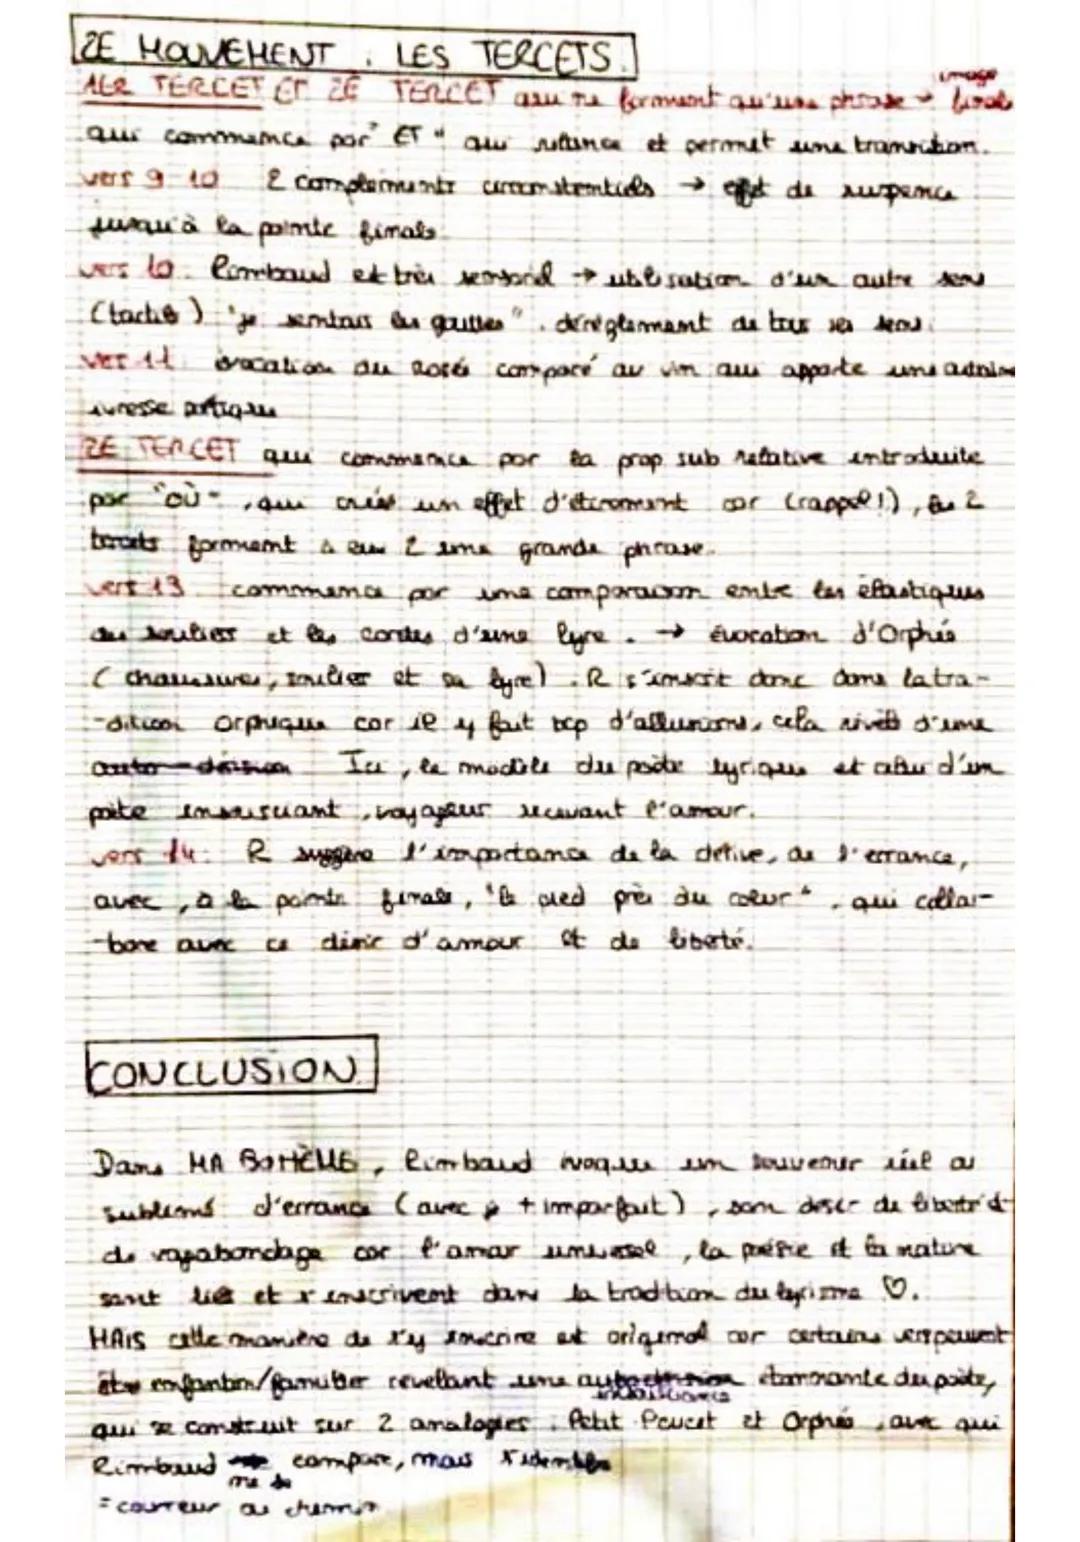 2E MOUVEMENT : LES TERCETS.
1ER TERCET ET 2E TERCET qui ne forment qu'une phrase → image finale
qui commence par "ET" qui relance et permet une transition.
vers 9-10 2 compléments circonstentiels → effet de suspence
jusqu'à la pointe finale.
vers 10 : Rimbaud est très sensoriel → utilisation d'un autre sens
(tactile) "je sentais les gouttes". dérèglement de tous ses sens.
vers 11 évocation du rosée comparé au vin qui apporte une
ivresse poétique
2E TERCET qui commence par la prop sub relative introduite
par "où", qui crée un effet d'étirement car (rappel!), les 2
tercets forment à eux 2 une grande phrase.
vers 13 commence par une comparaison entre les élastiques
des souliers et les cordes d'une lyre. → évocation d'Orphée
(chaussures, soulier et sa lyre). R s'inscrit donc dans la tra-
-dition orphique car il y fait bcp d'allusions, cela d'une
auto-dérision Ici, le modèle du poète lyrique et celui d'un
poète insouciant, voyageur recevant l'amour.
vers 14 : R suggère l'importance de la dérive, de l'errance,
avec, à la pointe finale, "le pied près du coeur", qui colla-
-bore avec ce désir d'amour et de liberté.
CONCLUSION
Dans MA BOHÈME, Rimbaud évoque un souvenir réel ou
sublimé d'errance (avec je + imparfait), son désir de liberté et
de vagabondage car l'amour universel, la poésie et la nature
sont liés et s'inscrivent dans la tradition du lyrisme ♡.
MAIS cette manière de s'y inscrire est original car certains vers peuvent
être enfantin/familier révélant une autodérision insouciance étonnante du poète,
qui se construit sur 2 analogies : Petit Poucet et Orphée, avec qui
Rimbaud ne se compare, mais s'identifie
= coureur de chemin